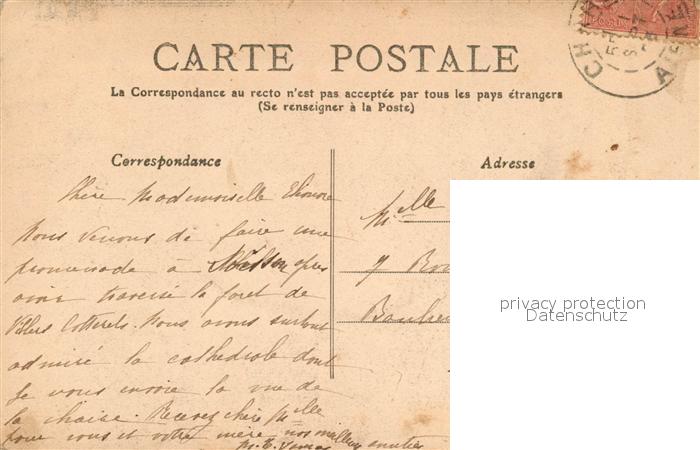 CARTE POSTALE
La Correspondance au recto n'est pas acceptée par tous les pays étrangers
(Se renseigner à la Poste)
Correspondance
Adresse
Chère Mademoiselle
Nous venons de faire une
promenade à après
avoir traversé la foret de
Villers Cotterets. Nous avons surtout
admiré la cathédrale dont
je vous envoie la vue de
la chaise. Recevez chère Melle
pour vous et votre mère nos meilleures amitiés
Melle
7
privacy protection
Datenschutz